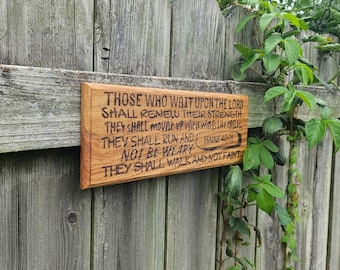 THOSE WHO WAIT UPON THE LORD
SHALL RENEW THEIR STRENGTH
THEY SHALL MOUNT UP WITH WINGS LIKE EAGLES
THEY SHALL RUN AND
NOT BE WEARY
ISAIAH 40:31
THEY SHALL WALK AND NOT FAINT